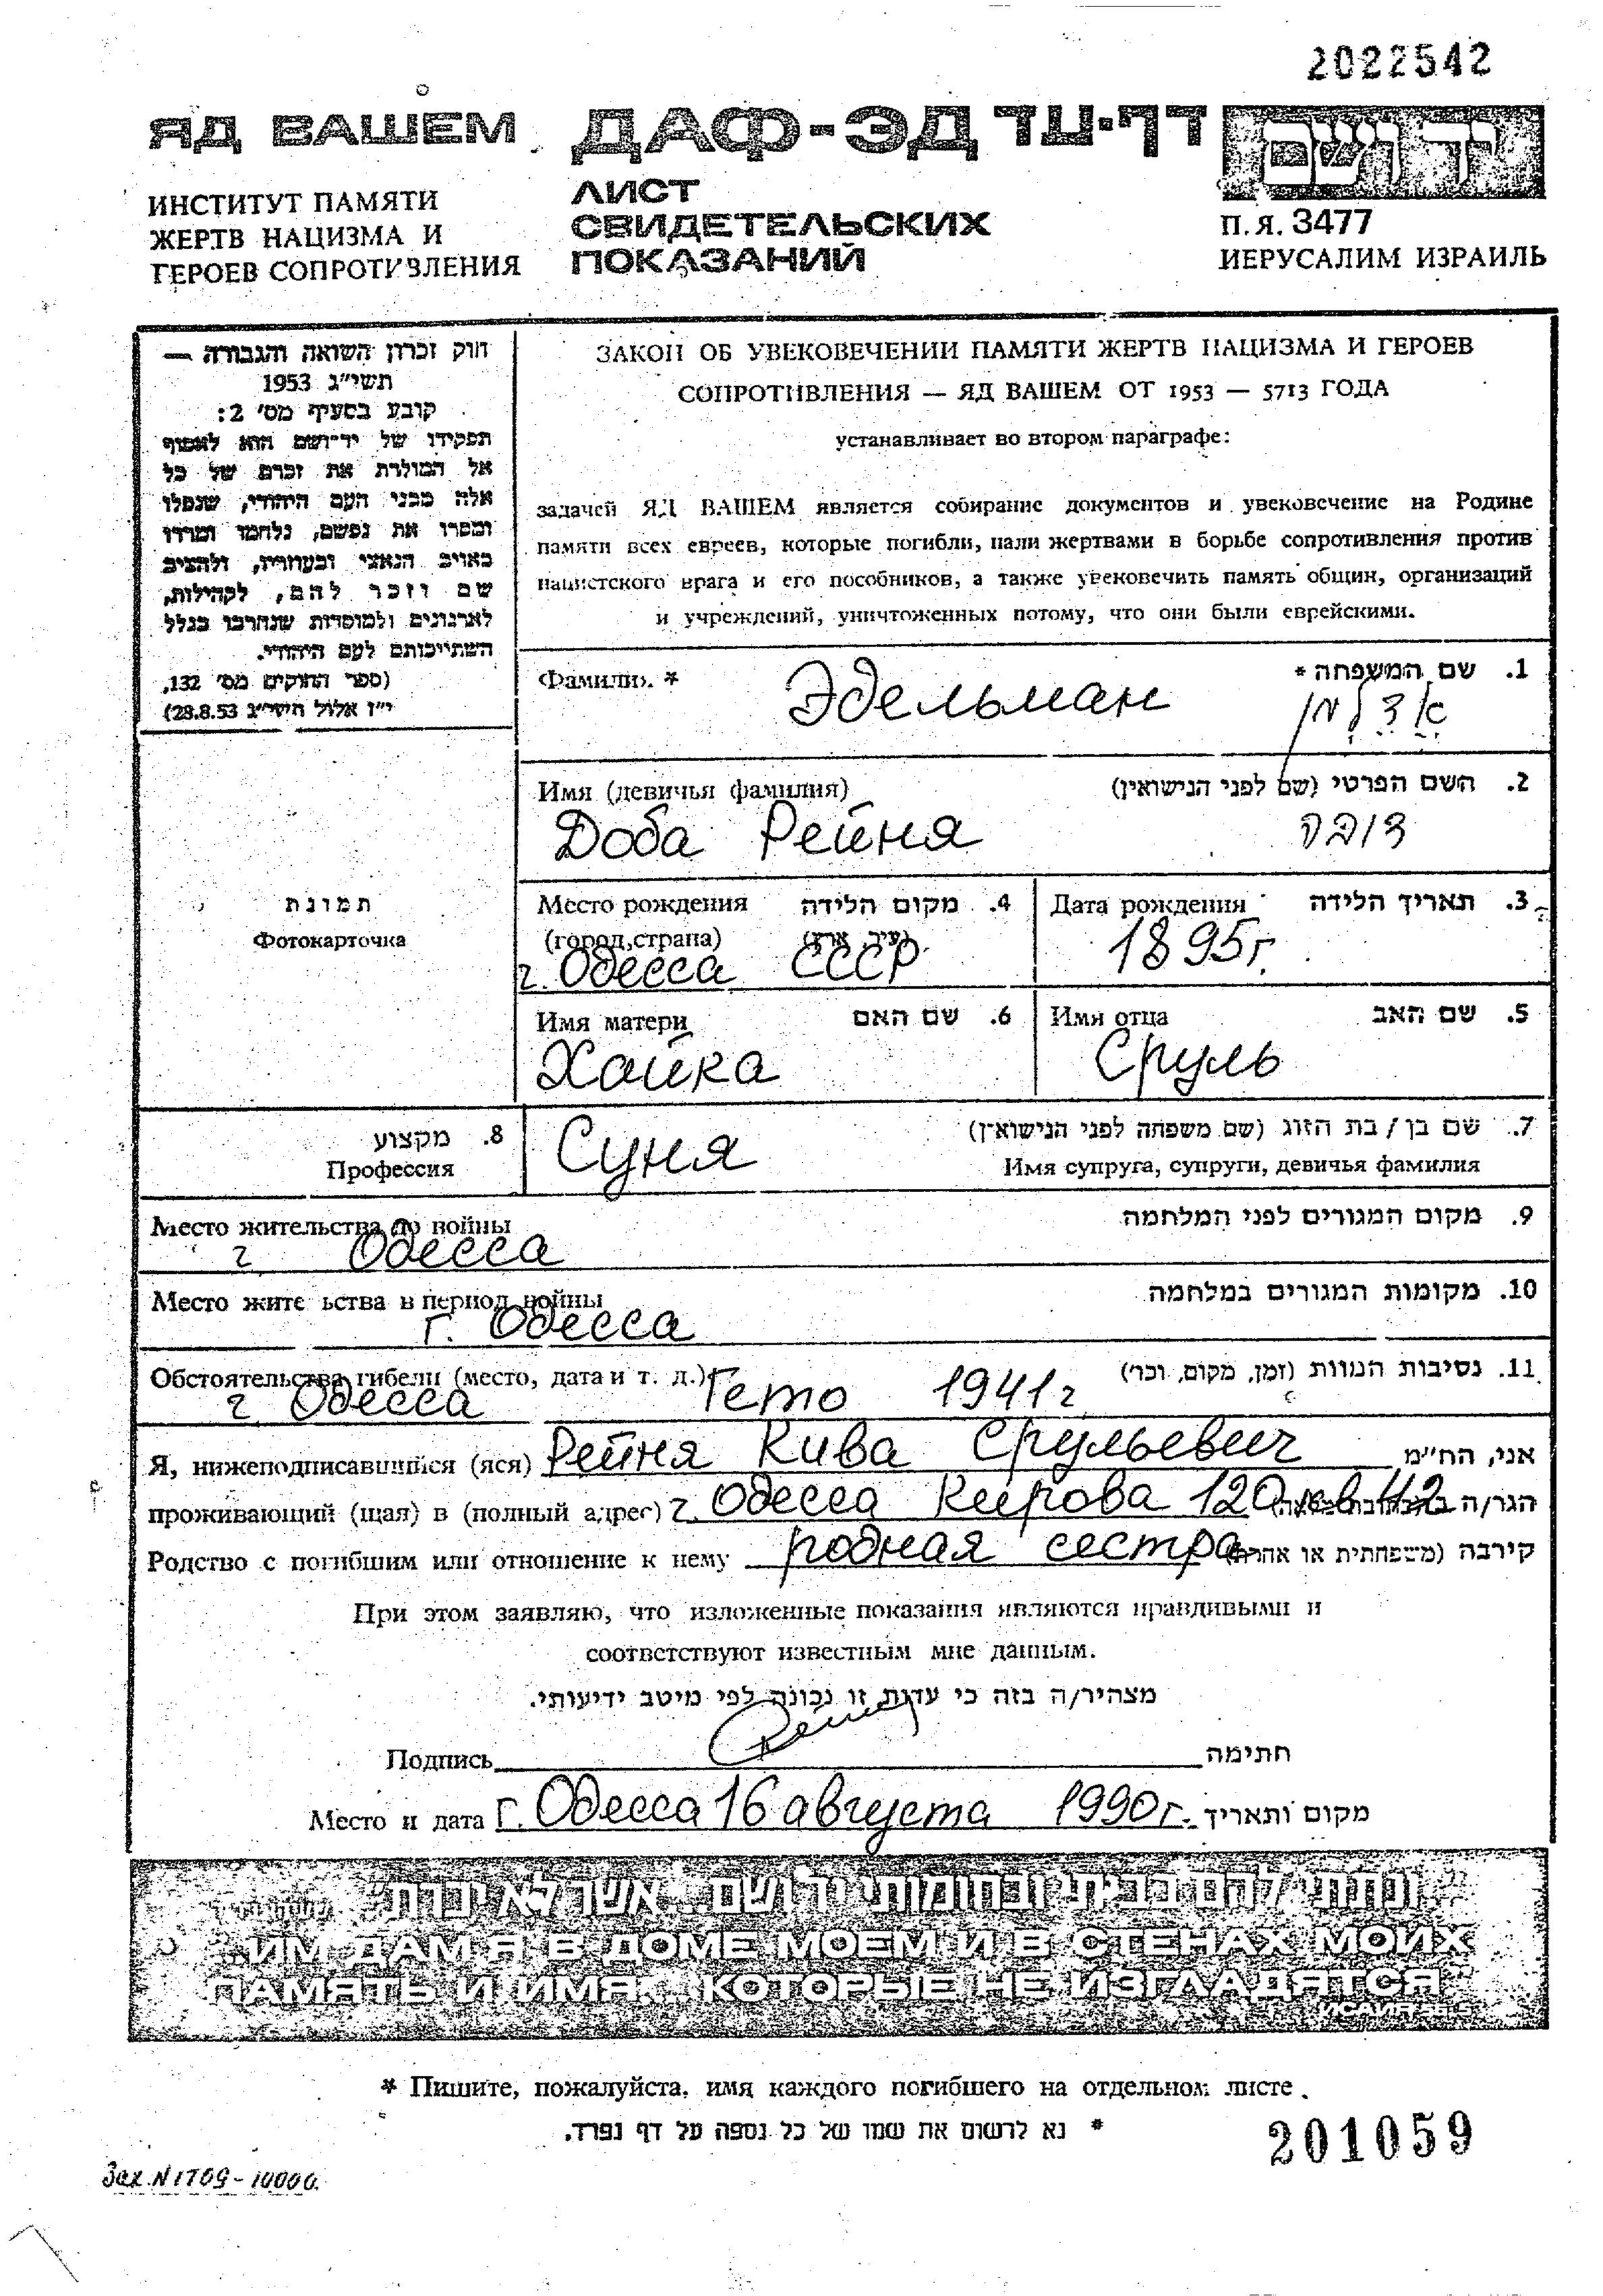 2022542
ЯД ВАШЕМ ДАФ-ЭД דף-עד יד ושם
ИНСТИТУТ ПАМЯТИ
ЖЕРТВ НАЦИЗМА И
ГЕРОЕВ СОПРОТИВЛЕНИЯ
ЛИСТ
СВИДЕТЕЛЬСКИХ
ПОКАЗАНИЙ
П.Я. 3477
ИЕРУСАЛИМ ИЗРАИЛЬ
חוק זכרון השואה והגבורה —
תשי״ג 1953
קובע בסעיף מס׳ 2:
תפקידו של יד־ושם הוא לאסוף
אל המולדת את זכרם של כל
אלה מבני העם היהודי, שנפלו
ומסרו את נפשם, נלחמו ומרדו
באויב הנאצי ובעוזריו, ולהציב
שם וזכר להם, לקהילות,
לארגונים ולמוסדות שנחרבו בגלל
השתייכותם לעם היהודי.
(ספר החוקים מס׳ 132,
י״ז אלול תשי״ג 28.8.53)
ЗАКОН ОБ УВЕКОВЕЧЕНИИ ПАМЯТИ ЖЕРТВ НАЦИЗМА И ГЕРОЕВ
СОПРОТИВЛЕНИЯ — ЯД ВАШЕМ ОТ 1953 — 5713 ГОДА
устанавливает во втором параграфе:
задачей ЯД ВАШЕМ является собирание документов и увековечение на Родине
памяти всех евреев, которые погибли, пали жертвами в борьбе сопротивления против
нацистского врага и его пособников, а также увековечить память общин, организаций
и учреждений, уничтоженных потому, что они были еврейскими.
Фамилия * 1. שם המשפחה *
Эдельман אידלמן
Имя (девичья фамилия) 2. השם הפרטי (שם לפני הנישואין)
Доба Рейня דובה
תמונת
Фотокарточка
Место рождения 4. מקום הלידה
(город, страна) (עיר, ארץ)
г. Одесса СССР
Дата рождения 3. תאריך הלידה
1895г.
Имя матери 6. שם האם
Хайка
Имя отца 5. שם האב
Сруль
8. מקצוע
Профессия
7. שם בן / בת הזוג (שם משפחה לפני הנישואין)
Суня Имя супруга, супруги, девичья фамилия
Место жительства до войны 9. מקום המגורים לפני המלחמה
г Одесса
Место жите ьства в период войны 10. מקומות המגורים במלחמה
г. Одесса
Обстоятельства гибели (место, дата и т. д.) 11. נסיבות המוות (זמן, מקום, וכר׳)
г. Одесса Гето 1941г
Я, нижеподписавшийся (яся) Рейня Кива Срульевич אני, הח״מ
проживающий (щая) в (полный адрес) г. Одесса Кирова 120 кв 42 הגר/ה
Родство с погибшим или отношение к нему родная сестра קירבה (משפחתית או אחרת)
При этом заявляю, что изложенные показания являются правдивыми и
соответствуют известным мне данным.
מצהיר/ה בזה כי עדות זו נכונה לפי מיטב ידיעותי.
Подпись חתימה
Место и дата г. Одесса 16 августа 1990г. מקום ותאריך
ונתתי להם בביתי ובחומותי יד ושם... אשר לא יכרת״
„ИМ ДАМ Я В ДОМЕ МОЕМ И В СТЕНАХ МОИХ
ПАМЯТЬ И ИМЯ... КОТОРЫЕ НЕ ИЗГЛАДЯТСЯ"
* Пишите, пожалуйста, имя каждого погибшего на отдельном листе.
* נא לרשום את שמו של כל נספה על דף נפרד.
201059
Зак. N 1709-10000.